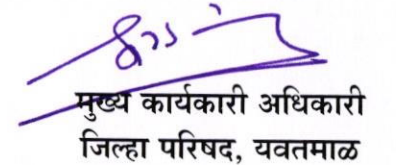 मुख्य कार्यकारी अधिकारी
जिल्हा परिषद, यवतमाळ